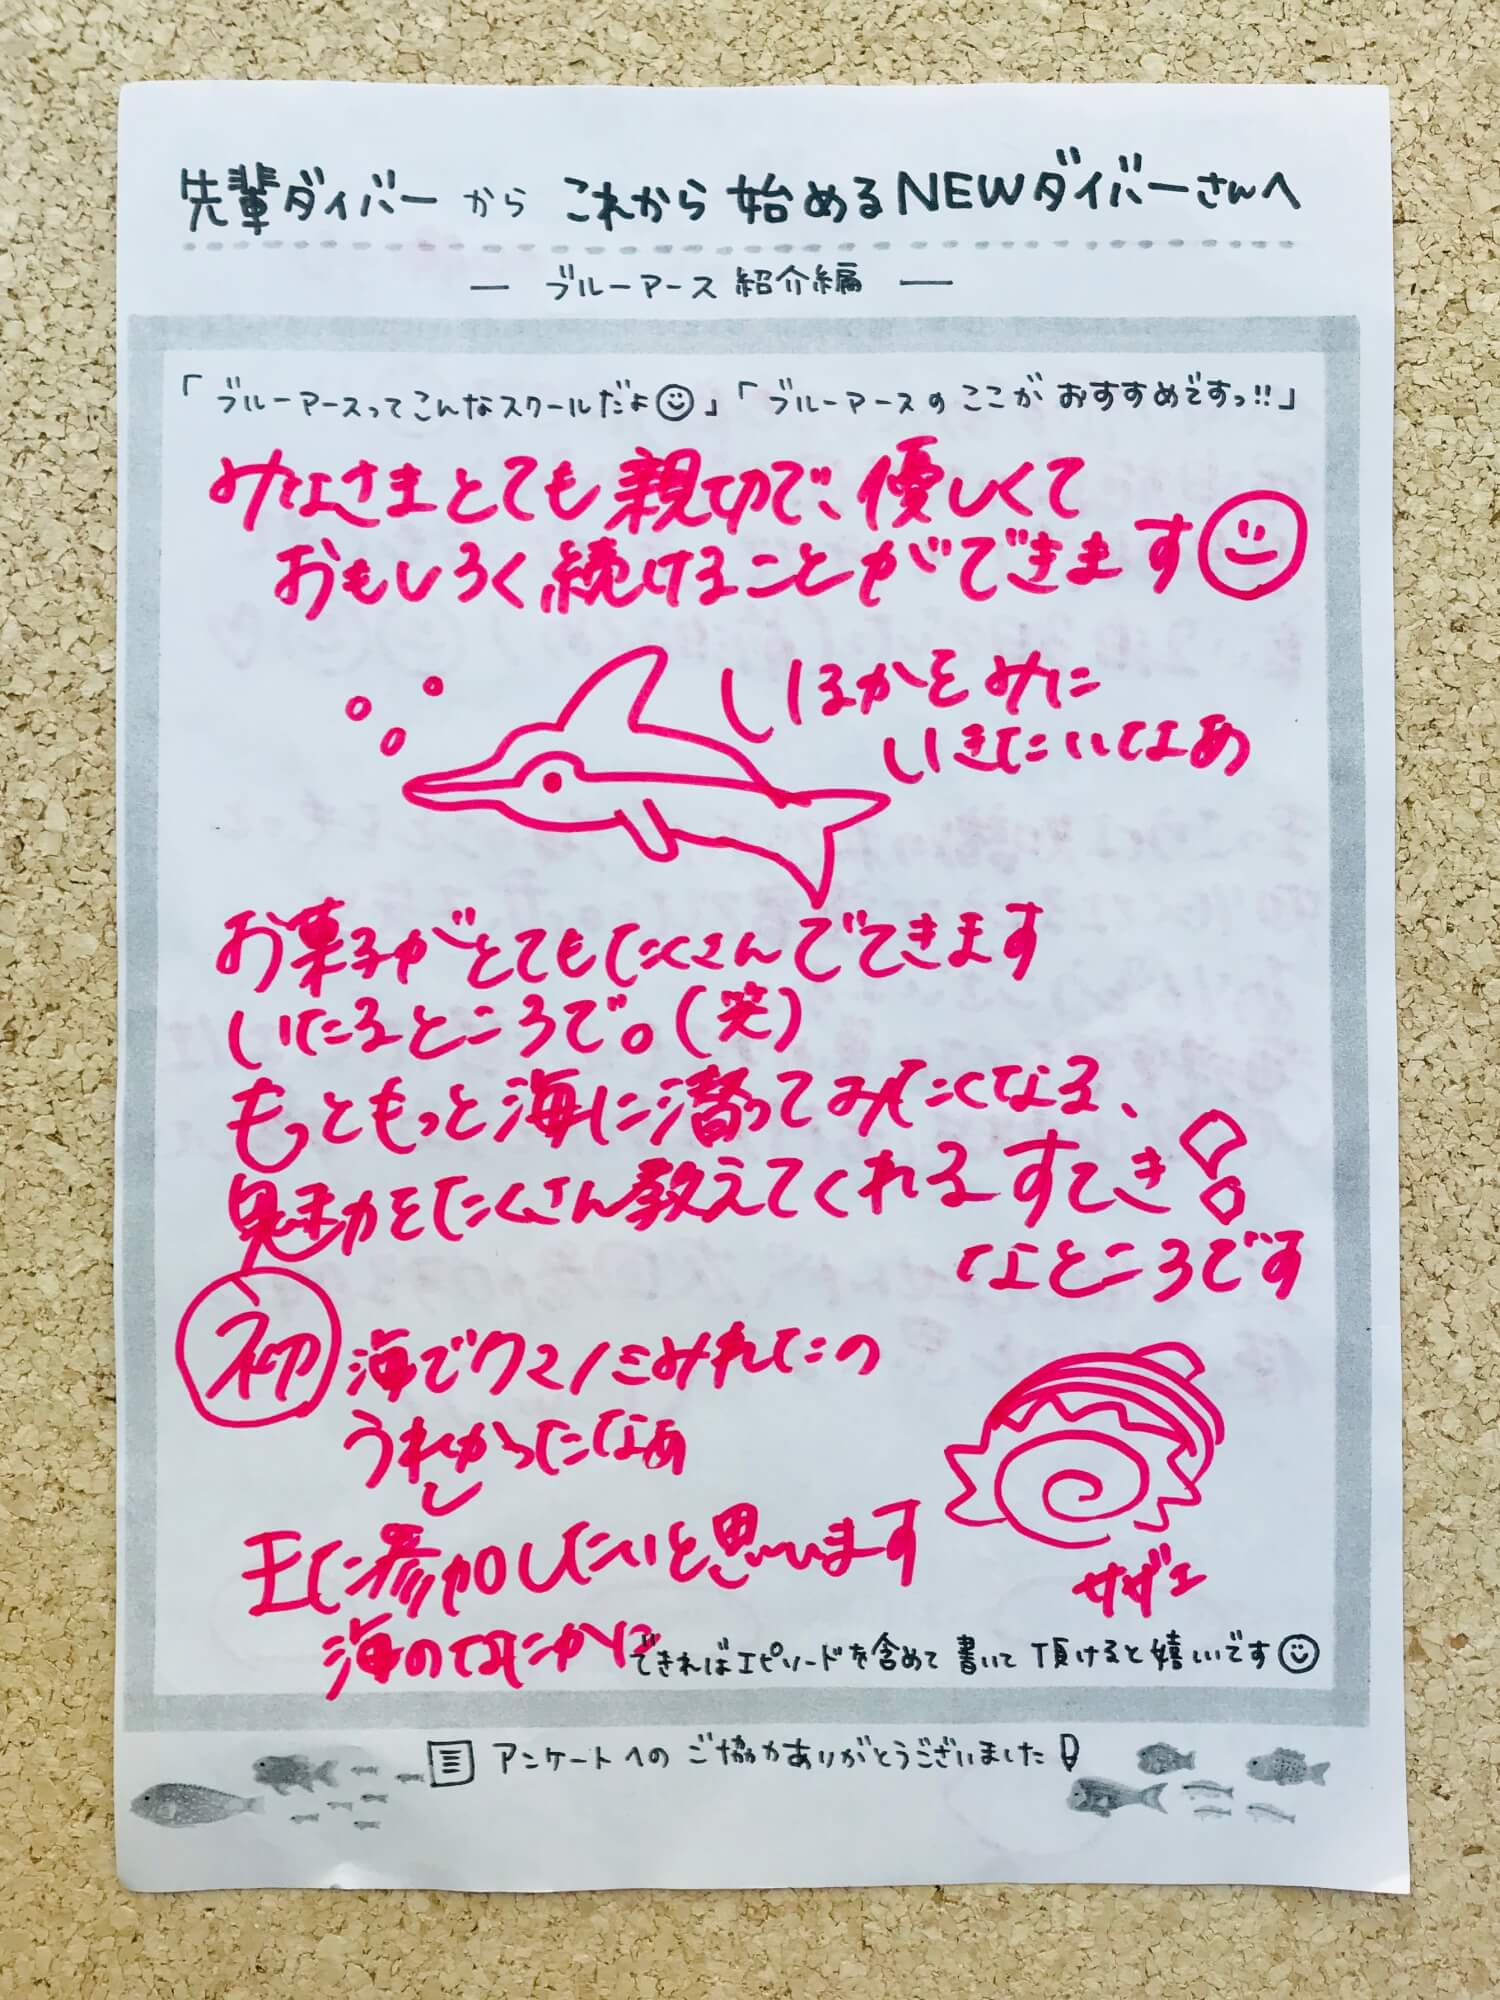 先輩ダイバーから これから 始めるNEWダイバーさんへ
― ブルーアース 紹介編 ―
「ブルーアースってこんなスクールだよ」「ブルーアースのここが おすすめですっ!!」
みなさまとても親切で、優しくて
おもしろく続けることができます
いるかをみに
いきたいなあ
お菓子がとてもたくさんでてきます
いたるところで。(笑)
もっともっと海に潜ってみたくなる、
魅力をたくさん教えてくれるすてき!
なところです
初 海でクマノミみれたの
うれしかったなあ
また参加したいと思います
海のなかに
サザエ
できればエピソードを含めて 書いて 頂けると嬉しいです
アンケートへの ご協力ありがとうございました